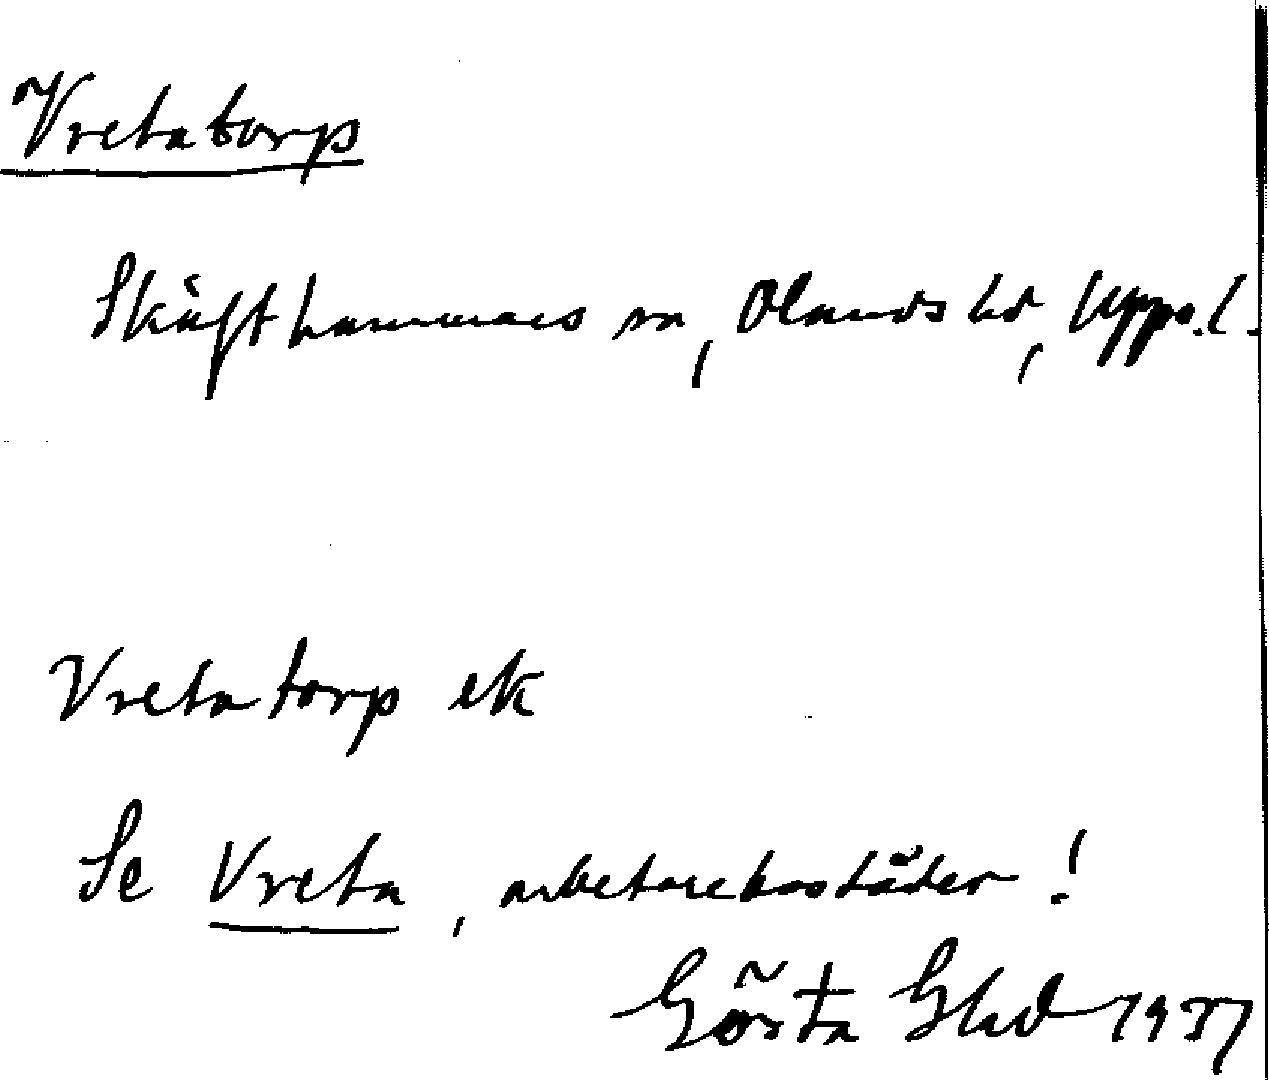 Vretatorp
Skäfthammars sn, Olands hd, Upps. l.
Vretatorp ek
Se Vreta, arbetarebostäder!
Gösta Blad 1937